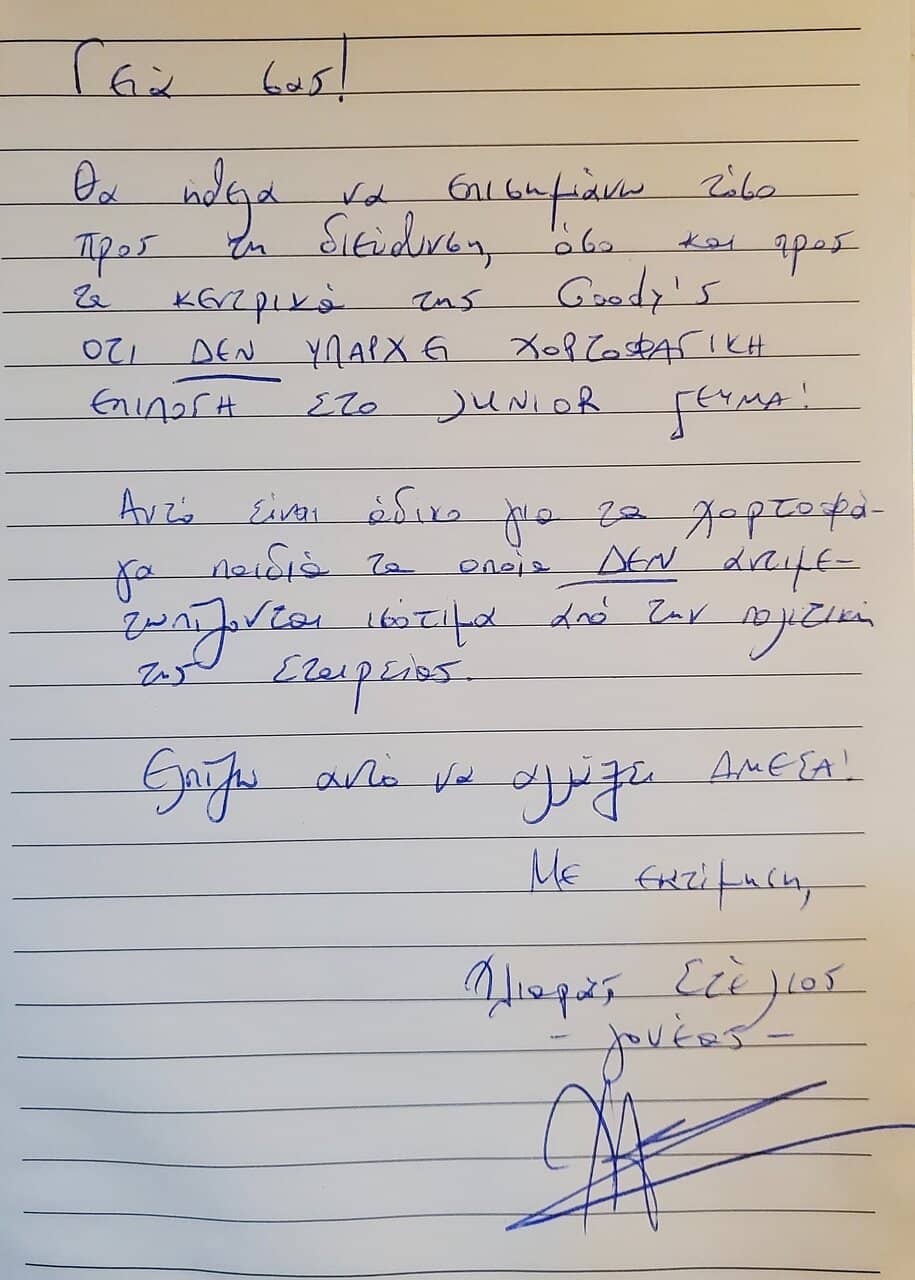 Γειά σας!
Θα ήθελα να επισημάνω τόσο
προς τη διεύθυνση, όσο και προς
τα κεντρικά της Goody's
ΟΤΙ ΔΕΝ ΥΠΑΡΧΕΙ ΧΟΡΤΟΦΑΓΙΚΗ
ΕΠΙΛΟΓΗ ΣΤΟ JUNIOR ΓΕΥΜΑ!
Αυτό είναι άδικο για τα χορτοφά-
γα παιδιά τα οποία ΔΕΝ αντιμε-
τωπίζονται ισότιμα από την πολιτική
της Εταιρείας.
Ελπίζω αυτό να αλλάξει ΑΜΕΣΑ!
Με εκτίμηση,
Χλιαράς Στέλιος
- γονέας -